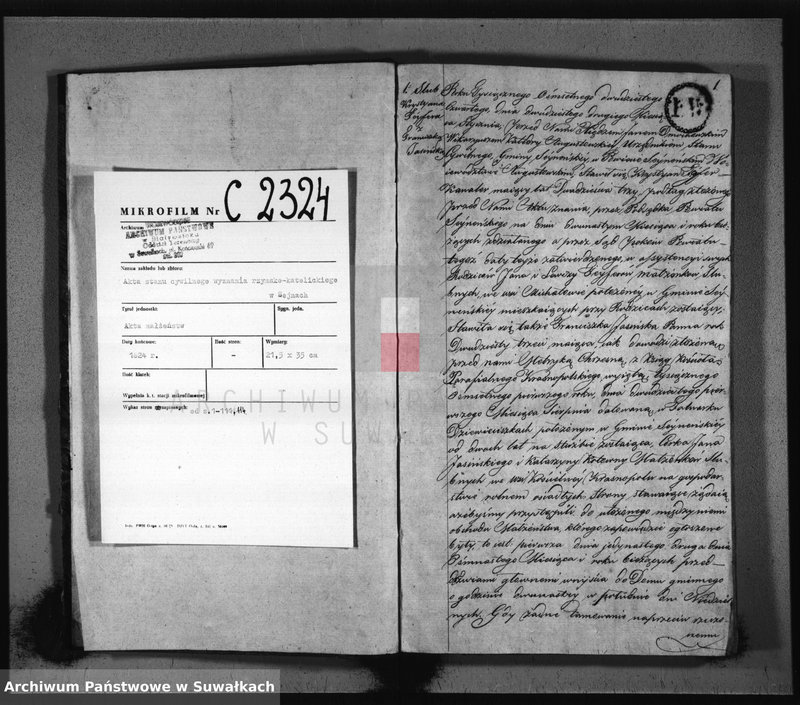 MIKROFILM Nr C 2324
Archiwum
ARCHIWUM PAŃSTWOWE
w Białymstoku
Nazwa zakładu lub zbioru:
Akta stanu cywilnego wyznania rzymsko-katolickiego
w Sejnach
Tytuł jednostki:
Sygn. jedn.
Akta małżeństw
Daty końcowe:
Ilość stron:
Wymiary:
1824 r.
-
21,5 x 35 cm
Ilość klatek:
Wypełnia k.t. stacji mikrofilmowej
Wykaz stron
ARCHIWUM
W SUWA
1
1. Ślub
Krystyana
z
Franciszką
Jasińską
Roku Tysięcznego Ośmsetnego dwudziestego
Czwartego, dnia dwudziestego drugiego Miesią
ca Stycznia, Przed Nami Xiędzem Janem
Wikaryuszem Katedry Augustowskiej Urzędnikiem Stanu
Cywilnego Gminy Seynenskiey w Powiecie Seynenskim Wo
iewodztwie Augustowskim, Stawił się Krystyan
Kawaler maiący lat Dwadzieścia trzy, podług złożonego
przed Nami Aktu znania, przez Podsędka Powiatu
Seynenskiego na dniu dwunastym Miesiąca i roku bie
żących zdziałanego a przez Sąd Pokoiu Powiatu
tegoż daty teyże zatwierdzonego, w assystencyi swych
Rodziców Jana i małżonków Ślu
bnych, we wsi Michalewie położoney w Gminie Sey
nenskiey mieszkaiących przy Rodzicach zostaiący,
Stawiła się także Franciszka Jasińska Panna rok
Dwudziesty trzeci maiąca, jak dowodzi złożona
przed nami Metryką Chrzesną, z Xiąg Kościoła
Parafialnego Krasnopolskiego wyiętą, Tysiącznego
Ośmsetnego pierwszego roku, dnia dwudziestego pier
wszego Miesiąca Sierpnia datowaną, w Folwarku
położonym w Gminie Seynenskiey
od dwóch lat na służbie zostaiąca, Córka Jana
Jasińskiego i Katarzyny Małżonków Ślu
bnych we wsi Kościelney Krasnopolu na gospodar
stwie rolnem osiadłych, Strony stawaiące żądaią
ażebyśmy przystąpili do ułożonego między niemi
obchodu Małżeństwa, którego zapowiedzi ogłoszone
były, to iest: pierwsza dnia jedynastego, druga dnia
Ośmnastego Miesiąca i roku bieżących przed
drzwiami głównemi wniyścia do Domu gminnego
o godzinie dwunastey w południe dni Niedziel
nych, Gdy żadne tamowanie naprzeciw rzeczo
nemu
Archiwum Państwowe w Suwałkach